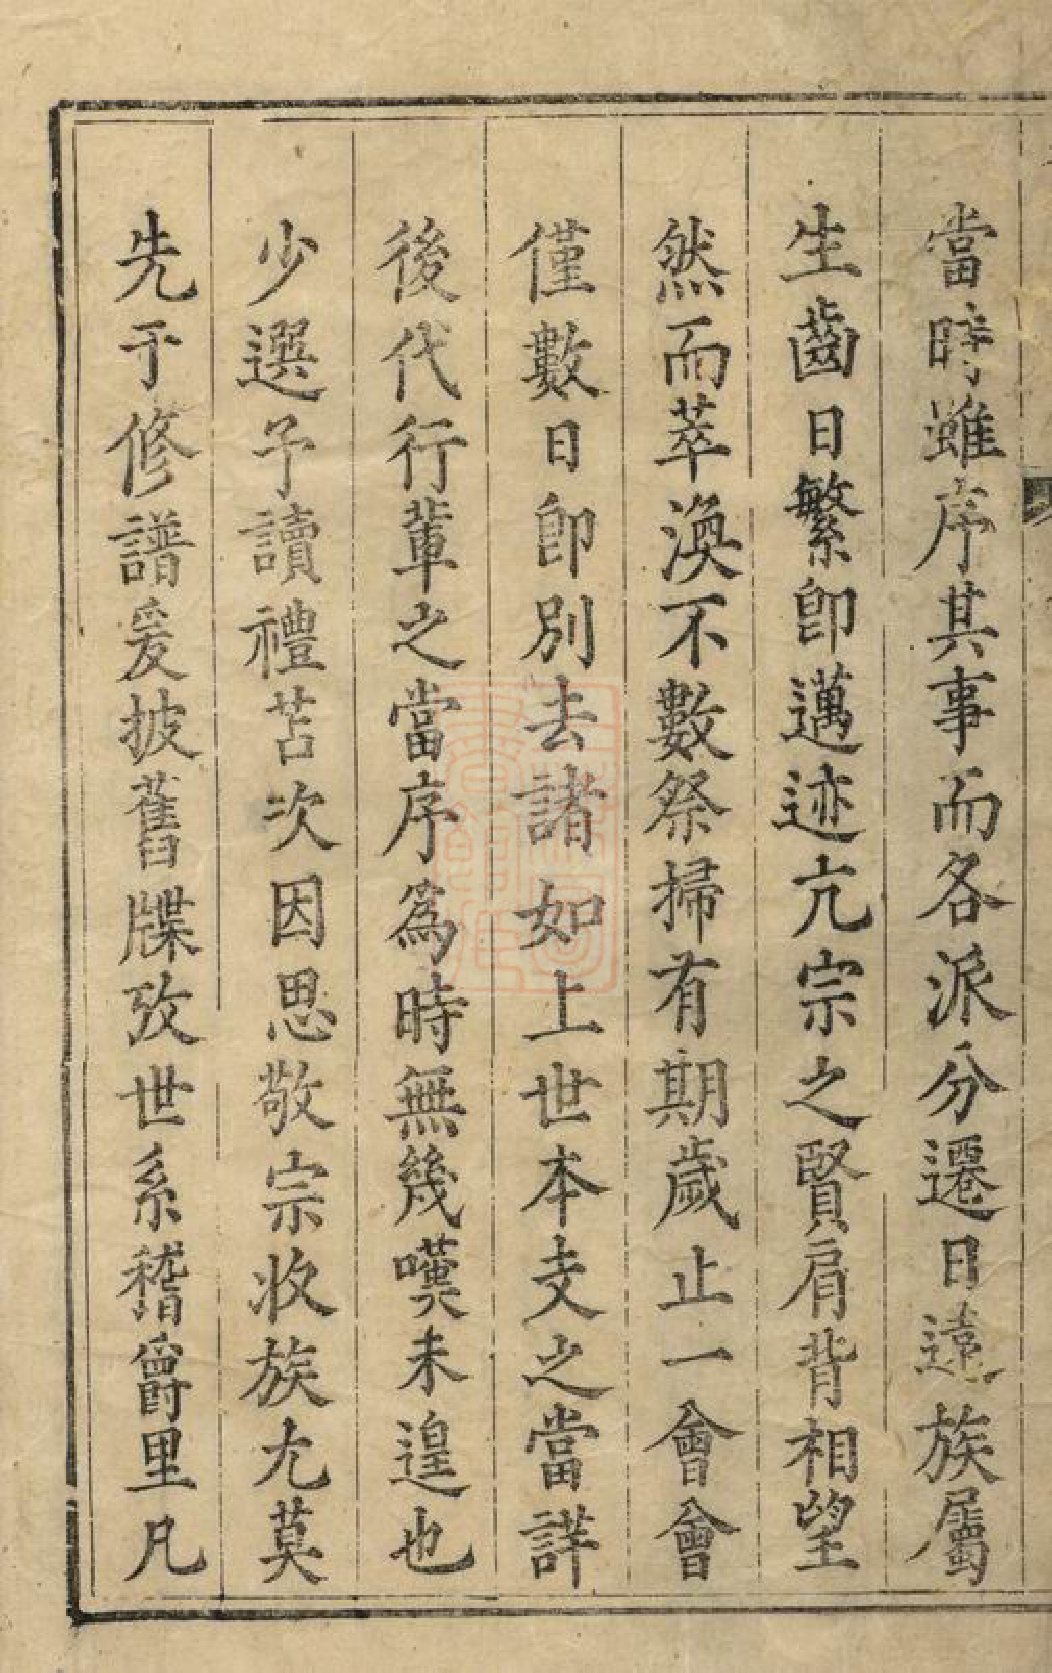 當時雖序其事而各派分遷日遠族屬
生齒日繁卽邁迹亢宗之賢肩背相望
然而萃渙不數祭掃有期歲止一會會
僅數日卽別去諸如上世本支之當詳
後代行輩之當序爲時無幾嘆未遑也
少選予讀禮苫次因思敬宗收族尤莫
先于修譜爰披舊牒攷世系稽爵里凡